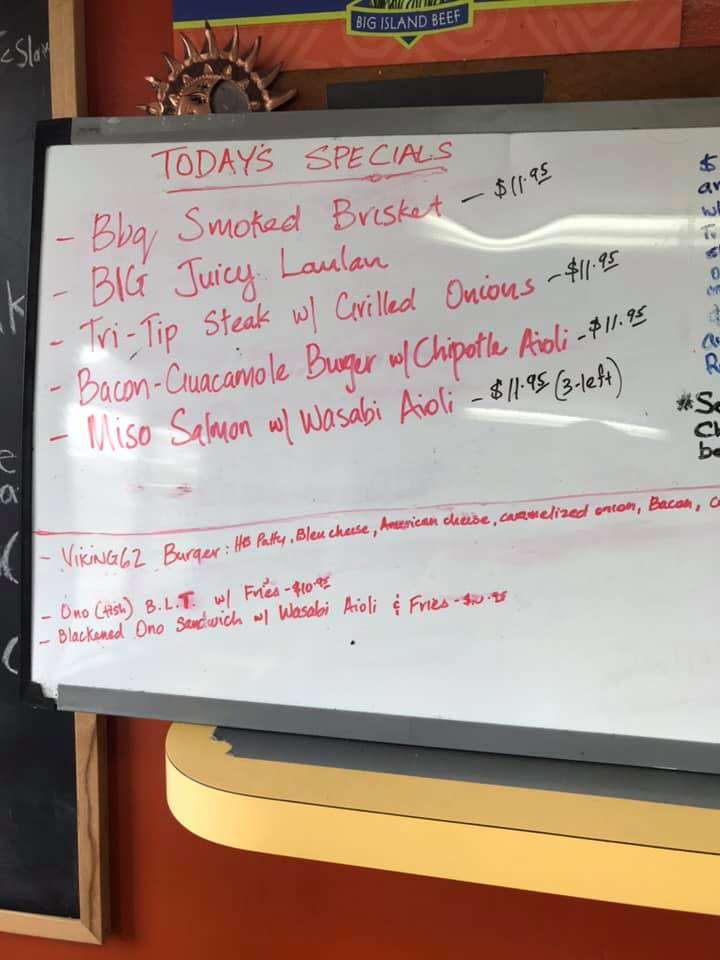 BIG ISLAND BEEF
TODAY'S SPECIALS
- Bbq Smoked Brisket - $11.95
- BIG Juicy Laulau
- Tri-Tip Steak w/ Grilled Onions - $11.95
- Bacon-Guacamole Burger w/ Chipotle Aioli - $11.95
- Miso Salmon w/ Wasabi Aioli - $11.95 (3-left)
- VIKING62 Burger: HB Patty, Bleu cheese, American cheese, caramelized onion, Bacon,
- Ono (fish) B.L.T. w/ Fries - $10.95
- Blackened Ono Sandwich w/ Wasabi Aioli & Fries - $10.95